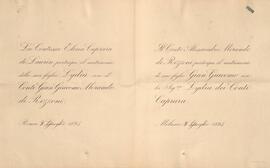 La Contessa Elena Caprara
di Laurin partecipa il matrimonio
della sua figlia Lydia con il
Conte Gian Giacomo Morando
de Rizzoni
Roma Luglio 1895
Il Conte Alessandro Morando
de Rizzoni partecipa il matrimonio
del suo figlio Gian Giacomo con
la Sig.na Lydia dei Conti
Caprara
Milano Luglio 1895